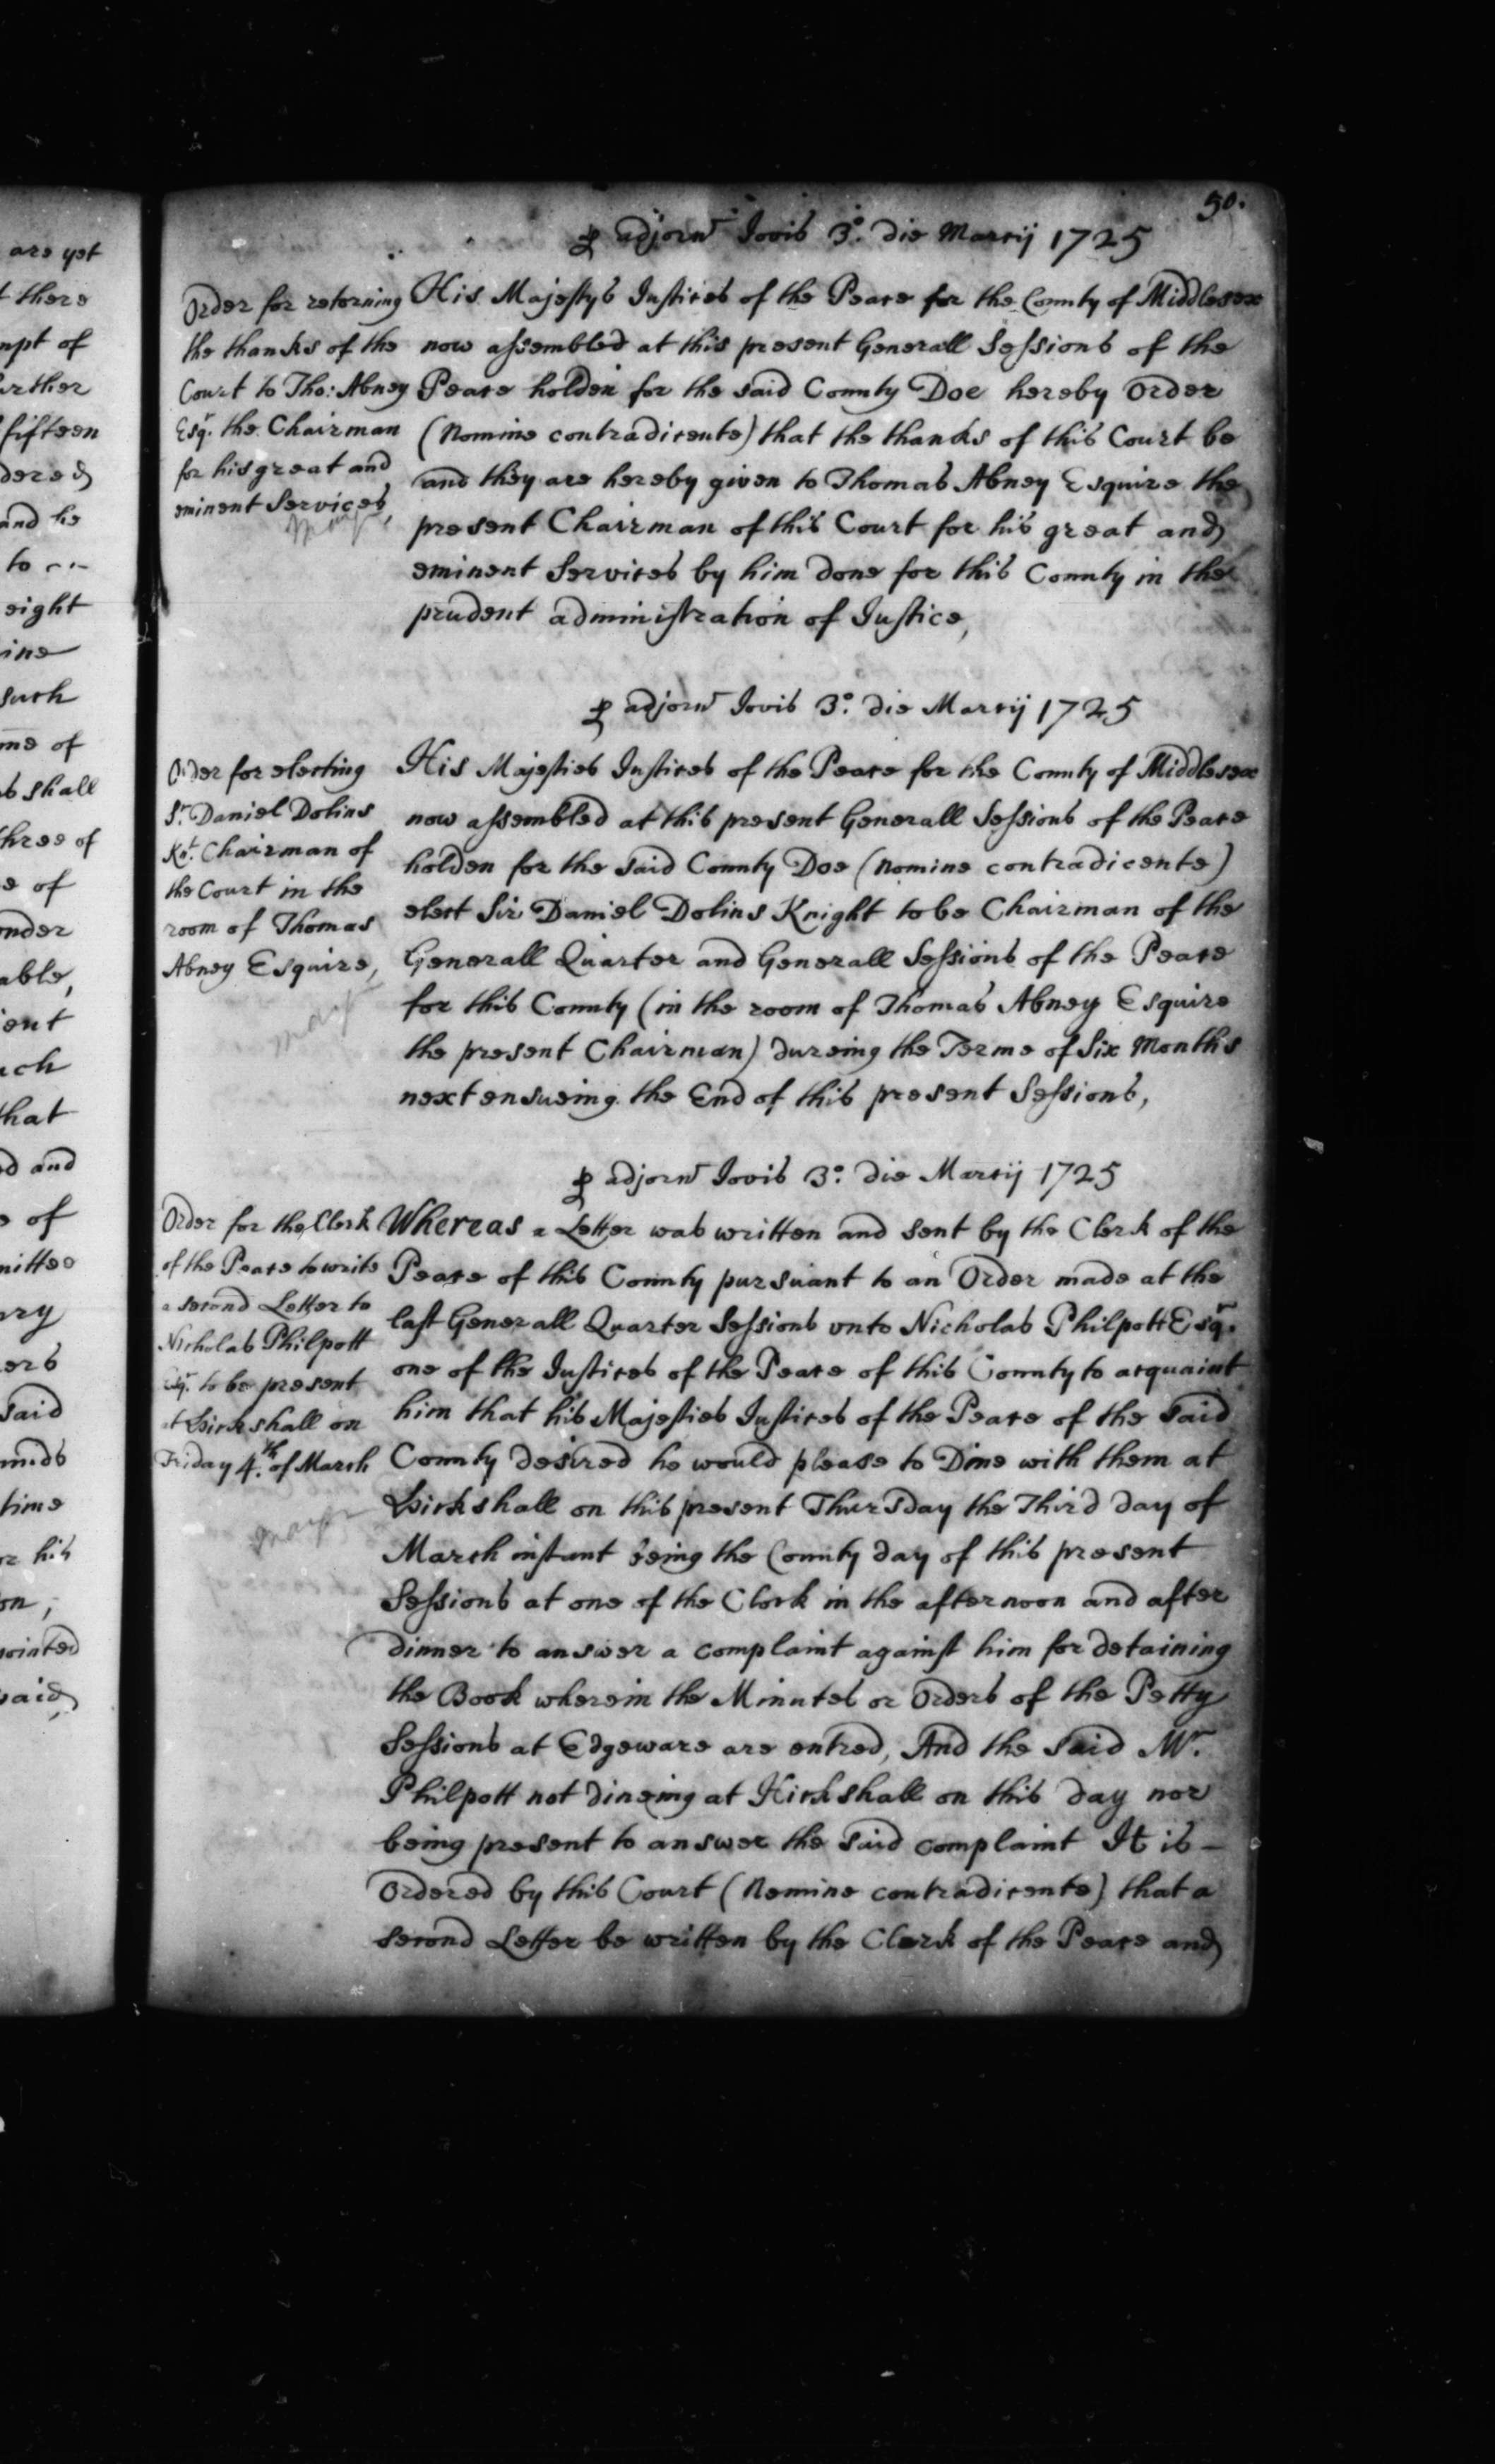 50.
p adjorn Jovis 3o. die Martij 1725
Order for retorning
the thanks of the
Court to Tho: Abney
Esqr. the Chairman
for his great and
eminent Services,
His Majestys Justices of the Peace for the County of Middlesex
now assembled at this present Generall Sessions of the
Peace holden for the said County Doe hereby Order
(Nemine contradicente) that the thanks of this Court be
and they are hereby given to Thomas Abney Esquire the
present Chairman of this Court for his great and
eminent Services by him done for this County in the
prudent administration of Justice,
p adjorn Jovis 3o. die Martij 1725
Order for electing
Sr. Daniel Dolins
Knt. Chairman of
the Court in the
room of Thomas
Abney Esquire,
His Majesties Justices of the Peace for the County of Middlesex
now assembled at this present Generall Sessions of the Peace
holden for the said County Doe (Nemine contradicente)
elect Sir Daniel Dolins Knight to be Chairman of the
Generall Quarter and Generall Sessions of the Peace
for this County (in the room of Thomas Abney Esquire
the present Chairman) dureing the Terme of Six Months
next ensueing the End of this present Sessions,
p adjorn Jovis 3o. die Martij 1725
Order for the Clerk
of the Peace to write
a second Letter to
Nicholas Philpott
Esqr. to be present
at Hickshall on
Friday 4th. of March
Whereas a Letter was written and sent by the Clerk of the
Peace of this County pursuant to an Order made at the
last Generall Quarter Sessions unto Nicholas Philpott Esqr.
one of the Justices of the Peace of this County to acquaint
him that his Majesties Justices of the Peace of the said
County desired he would please to Dine with them at
Hickshall on this present Thursday the Third day of
March instant being the County day of this present
Sessions at one of the Clock in the afternoon and after
dinner to answer a complaint against him for detaining
the Book wherein the Minutes or Orders of the Petty
Sessions at Edgeware are entred, And the said Mr.
Philpott not dineing at Hickshall on this day nor
being present to answer the said complaint It is -
Ordered by this Court (Nemine contradicente) that a
second Letter be written by the Clerk of the Peace and